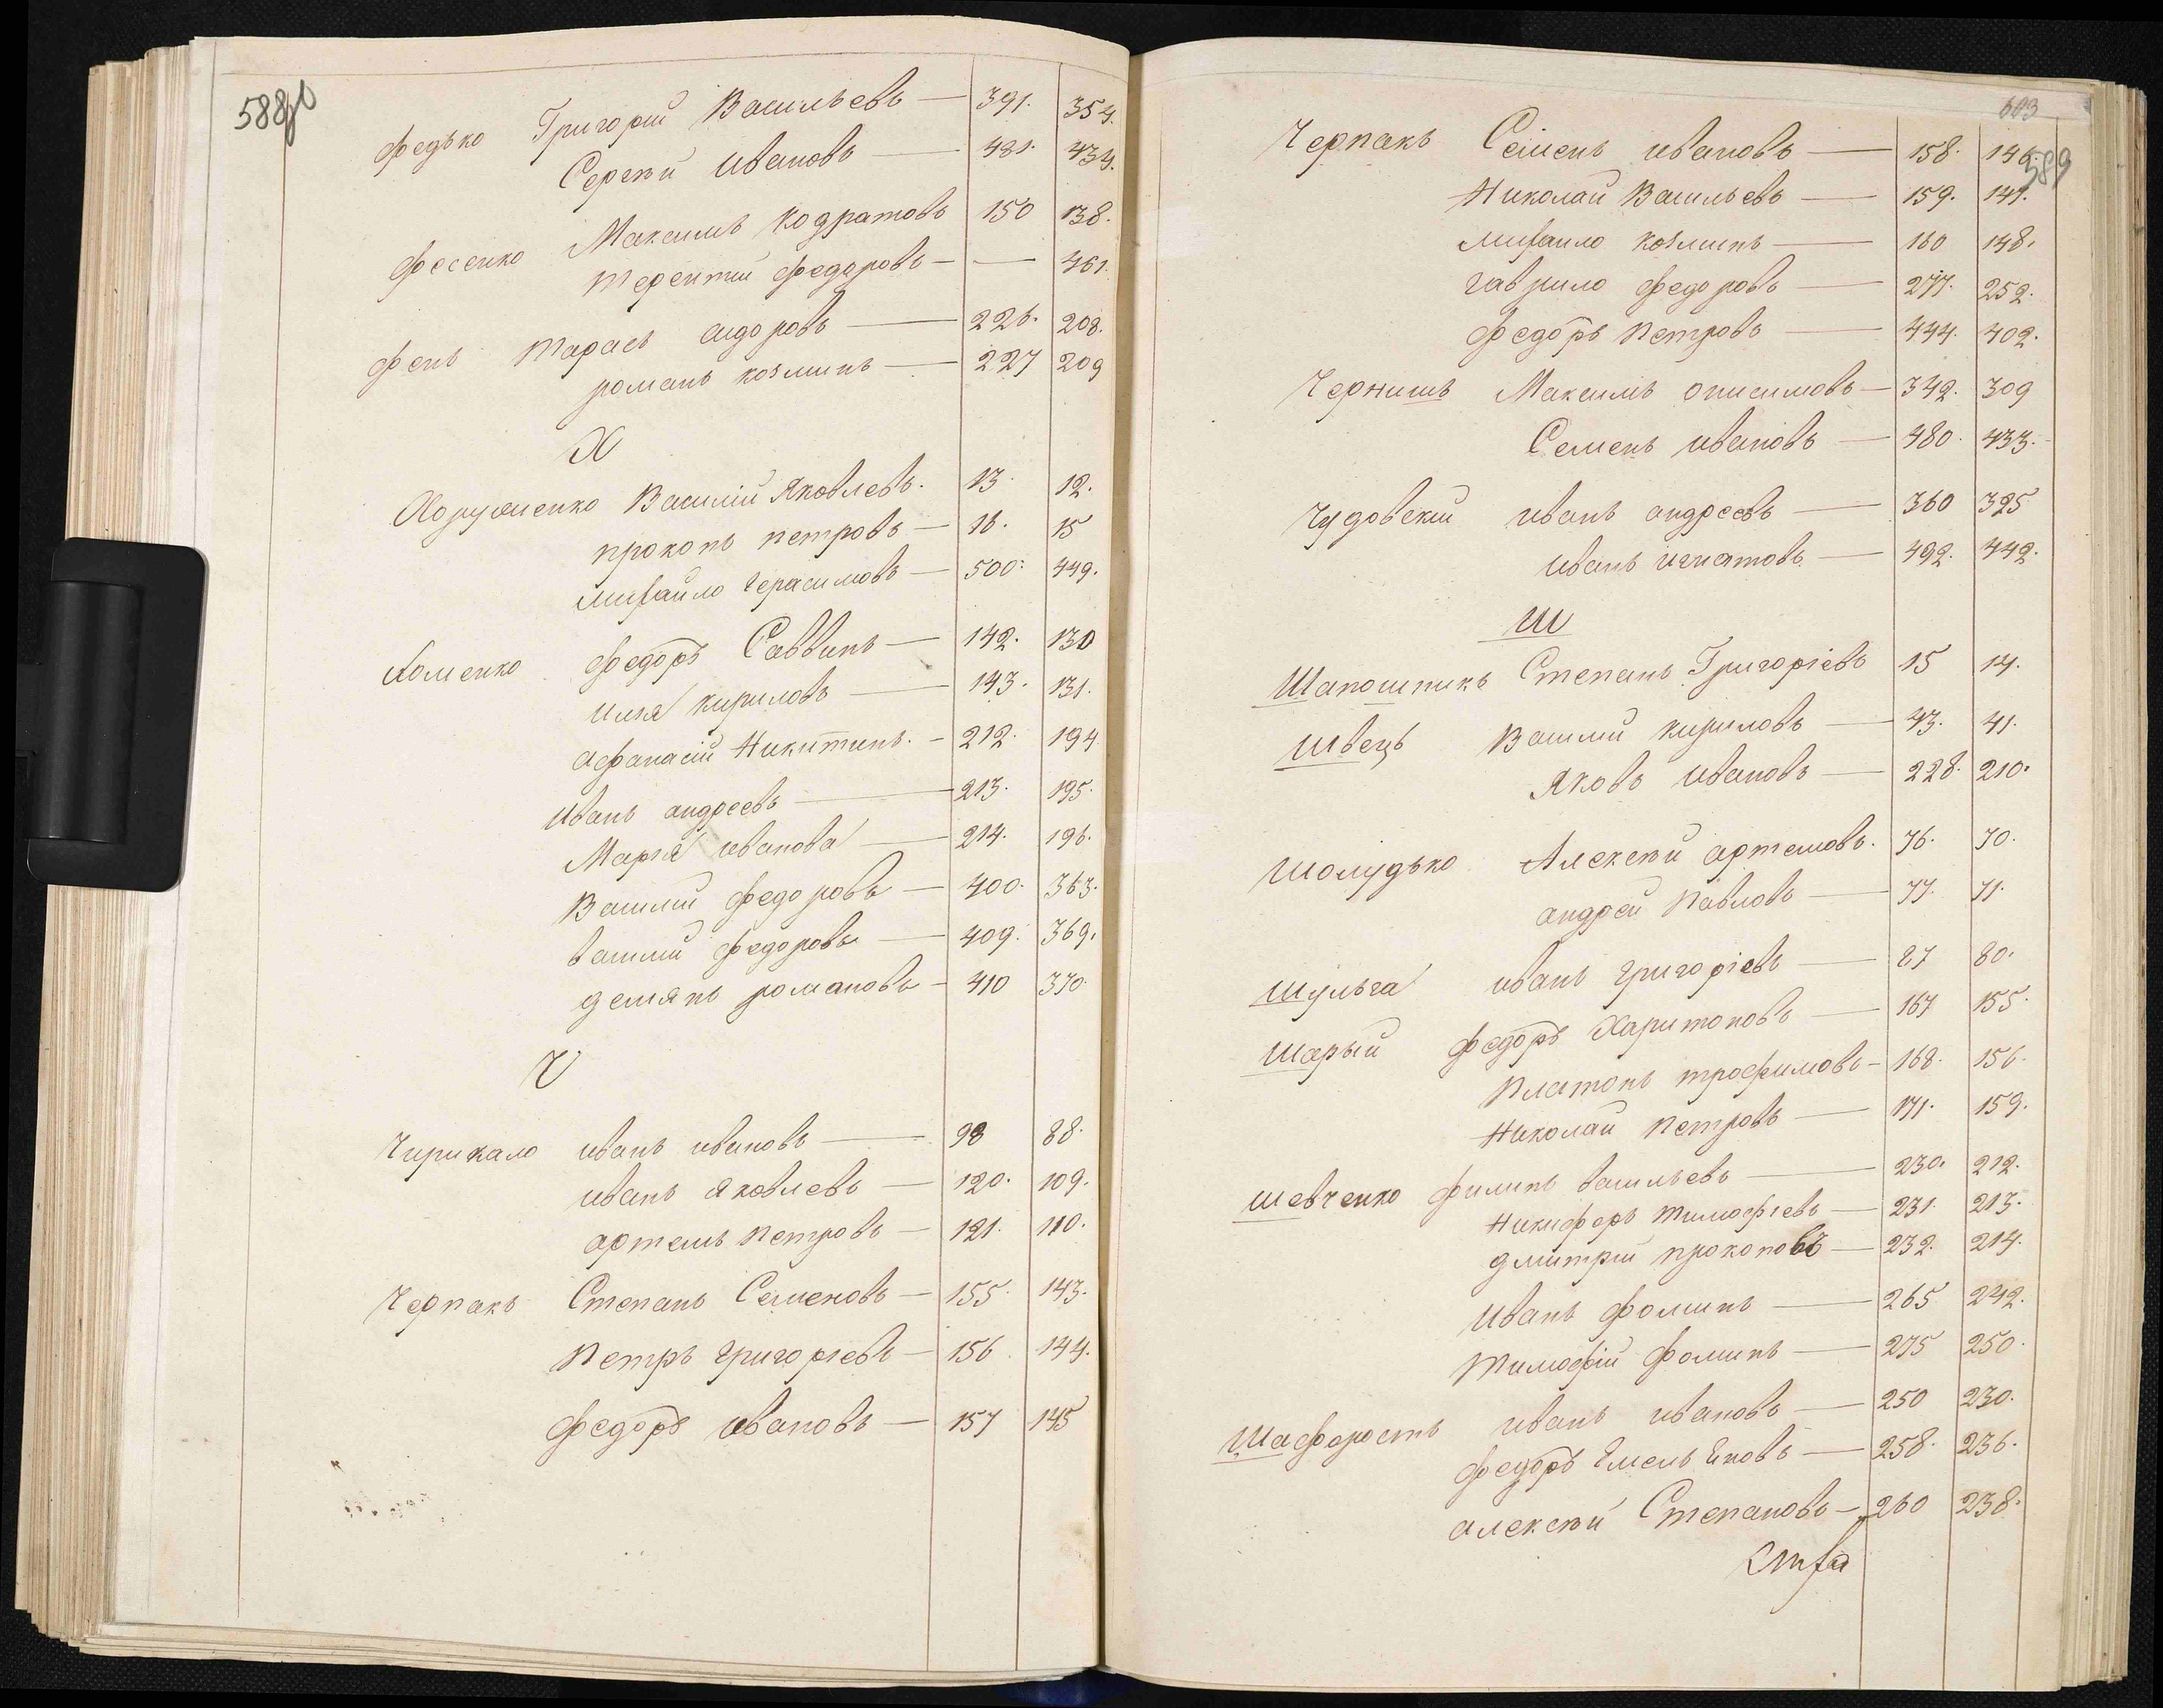 588об
Федько Григорій Васильевъ — 391. 354.
Сергѣй Ивановъ — 481. 434.
Фесенко Максимъ Кодратовъ 150 138.
Терентій Федоровъ — — 461.
Фень Тарасъ Сидоровъ — 226. 208.
романъ козминъ — 227 209
Х
Хоружненко Василій Яковлевъ. 13. 12.
прокопъ петровъ — 16. 15
михайло Герасимовъ — 500. 449.
Хоменко Федоръ Саввинъ — 142. 130
Илья Кириловъ — 143. 131.
Афанасій Никитинъ. — 212. 194
Иванъ андреевъ — 213. 195.
Марія иванова — 214. 196.
Василій Федоровъ — 400. 363.
василій Федоровъ — 409. 369.
демянъ романовъ — 410 370.
Ч
Чирикало иванъ ивановъ — 98 88.
иванъ Яковлевъ — 120. 109.
артемъ Петровъ — 121. 110.
Черпакъ Степанъ Семеновъ — 155. 143.
Петръ Григоріевъ — 156. 144.
Федоръ Ивановъ — 157 145
603
589
Черпакъ Семенъ ивановъ — 158. 146.
Николай Васильевъ — 159. 147.
михайло козминъ — 160 148.
гаврило Федоровъ — 277. 252.
Федоръ Петровъ — 444. 402.
Чернишъ Максимъ Онисимовъ — 342. 309
Семенъ Ивановъ — 480. 433.
Чудовскій иванъ андреевъ — 360 325
Иванъ Игнатовъ — 492. 442.
Ш
Шапошникъ Степанъ Григоріевъ 15 14.
Швецъ Василій Кириловъ — 43. 41.
Яковъ Ивановъ — 228. 210.
Шолудько Алексѣй артемовъ. 76. 70.
андрей Павловъ — 77. 71.
Шульга иванъ Григоріевъ — 87 80.
Шарый Федоръ Харитоновъ — 167 155.
Платонъ трофимовъ — 168. 156.
Николай Петровъ — 171. 159.
Шевченко Филипъ васильевъ — 230. 212.
Никифоръ Тимофіевъ — 231. 213.
дмитрій прокоповъ — 232. 214.
Иванъ Фоминъ — 265 242.
Тимофій Фоминъ — 275 250.
Шафоростъ иванъ ивановъ — 250 230.
Федоръ Емельяновъ — 258. 236.
алексѣй Степановъ — 260 238.